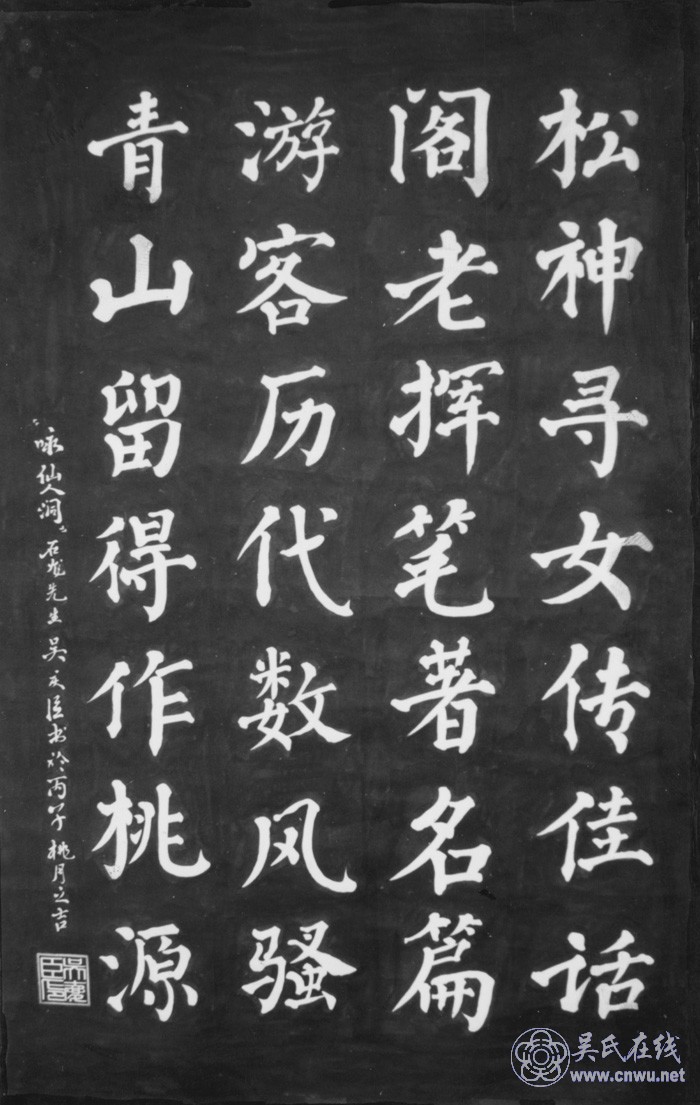 松神寻女传佳话
阁老挥笔著名篇
游客历代数风骚
青山留得作桃源
咏仙人洞 石龙先生吴文臣书于丙子桃月之吉
吴氏在线
www.cnwu.net